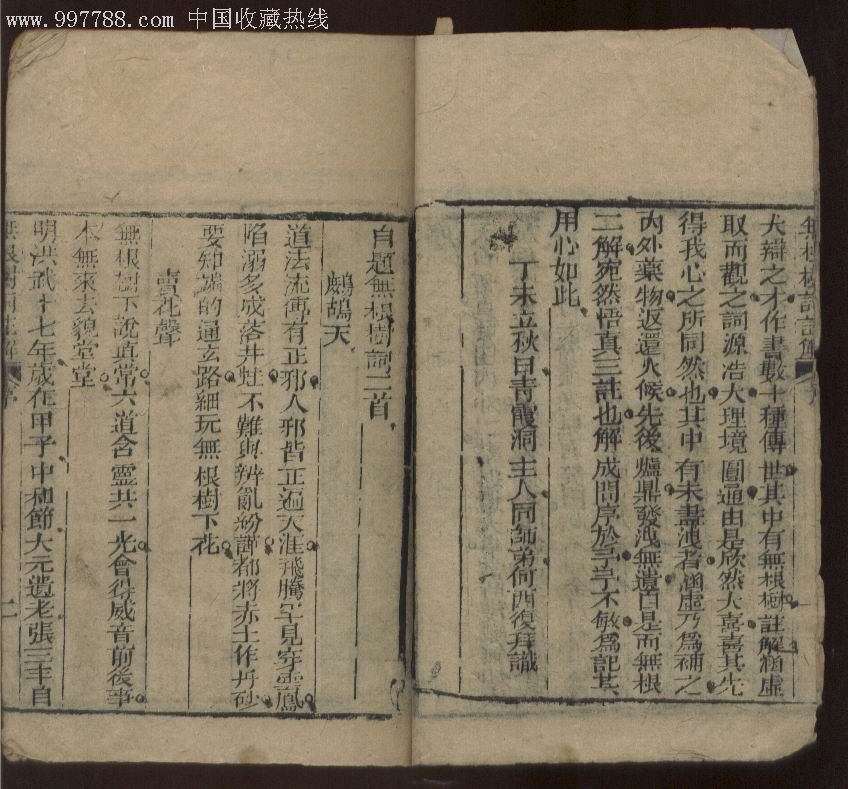 www.997788.com 中国收藏热线
無根樹詞註解 序
大辯之才作書數十種傳世其中有無根樹註解涵虛
取而觀之詞源浩大理境圓通由是欣然大喜喜其先
得我心之所同然也其中有未盡洩者涵虛乃爲補之
內外藥物返還火候先後爐鼎發洩無遺自是而無根
二解宛然悟真三註也解成問序於予予不敏爲記其
用心如此
丁未立秋日青霞洞主人同師弟何西復拜識
自題無根樹詞二首
鷓鴣天
道法流傳有正邪入邪背正遍天涯飛騰罕見穿雲鳳
陷溺多成落井蛙不難與辨亂紛譁都將赤土作丹砂
要知端的通玄路細玩無根樹下花
賣花聲
無根樹下說真常六道含靈共一光會得威音前後事
本無來去貌堂堂
明洪武十七年歲在甲子中和節大元遺老張三丰自
無根樹詞註解 序 二